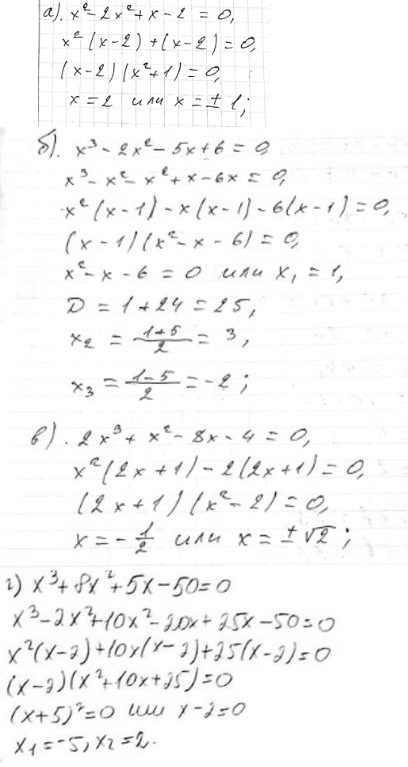 а). x² - 2x² + x - 2 = 0,
x² (x - 2) + (x - 2) = 0,
(x - 2) (x² + 1) = 0,
x = 2 или x = ± 1;
б). x³ - 2x² - 5x + 6 = 0,
x³ - x² - x² + x - 6x = 0,
x² (x - 1) - x (x - 1) - 6 (x - 1) = 0,
(x - 1) (x² - x - 6) = 0,
x² - x - 6 = 0 или x₁ = 1,
D = 1 + 24 = 25,
x₂ = (1+5)/2 = 3,
x₃ = (1-5)/2 = -2;
в). 2x³ + x² - 8x - 4 = 0,
x² (2x + 1) - 2 (2x + 1) = 0,
(2x + 1) (x² - 2) = 0,
x = - 1/2 или x = ± √2;
г) x³ + 8x² + 5x - 50 = 0
x³ - 2x² + 10x² - 20x + 25x - 50 = 0
x² (x - 2) + 10x (x - 2) + 25 (x - 2) = 0
(x - 2) (x² + 10x + 25) = 0
(x + 5)² = 0 или x - 2 = 0
x₁ = -5, x₂ = 2.